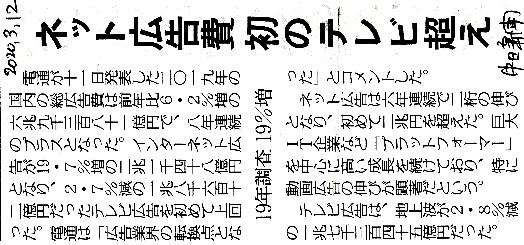 2020,3,12
ネット広告費初のテレビ超え
19年調査 19%増
電通が十一日発表した二〇一九年の
国内の総広告費は前年比6・2%増の
六兆九千三百八十一億円で、八年連続
のプラスとなった。インターネット広
告が19・7%増の二兆一千四十八億円
となり、2・7%減の一兆八千六百十
二億円だったテレビ広告を初めて上回
った。電通は「広告業界の転換点とな
った」とコメントした。
ネット広告は六年連続で二桁の伸び
となり、初めて二兆円を超えた。巨大
IT企業など「プラットフォーマー」
を中心に高い成長を続けており、特に
動画広告の伸びが顕著だという。
テレビ広告は、地上波が2・8%減
の一兆七千三百四十五億円だった。